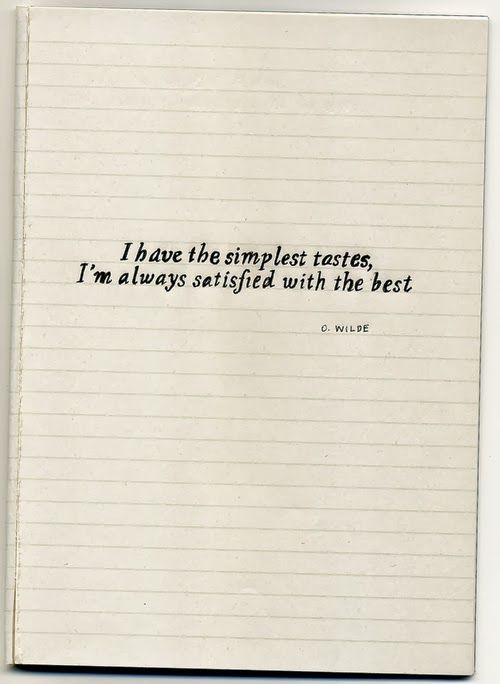 I have the simplest tastes,
I'm always satisfied with the best
O. WILDE